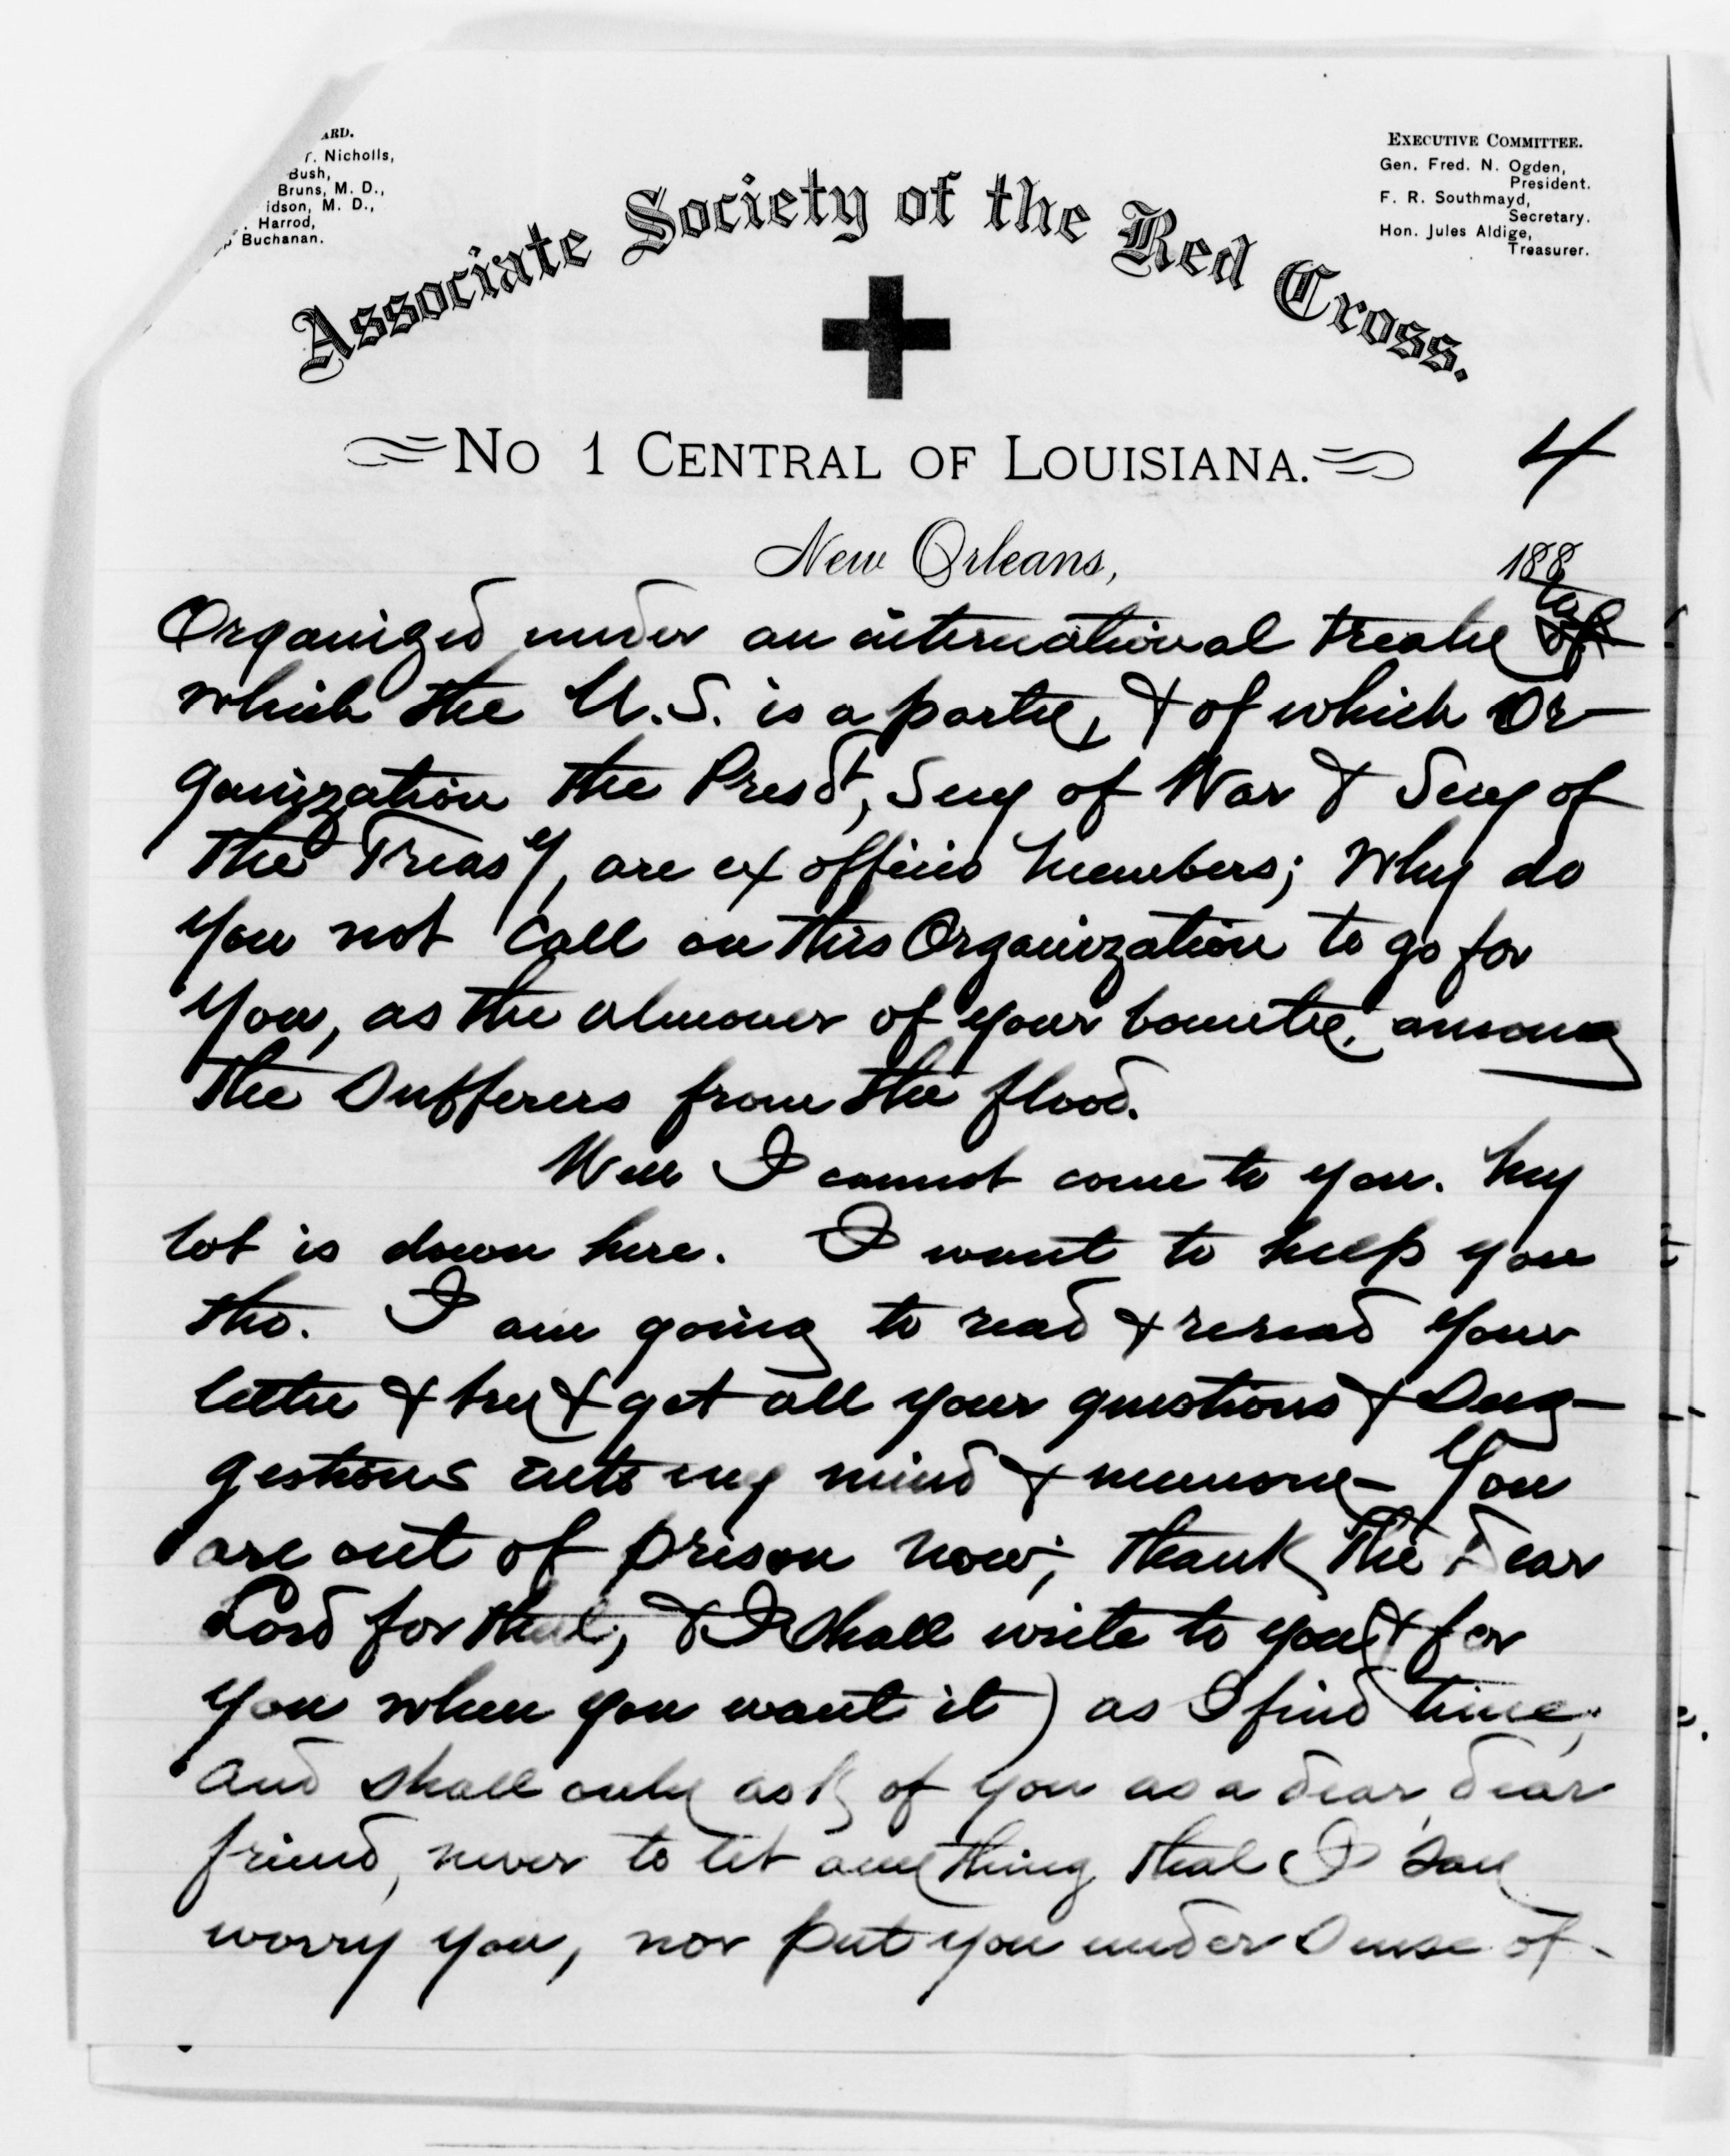 ARD.
T. Nicholls,
Bush,
Bruns, M. D.,
idson, M. D.,
. Harrod,
Buchanan.
EXECUTIVE COMMITTEE.
Gen. Fred. N. Ogden,
President.
F. R. Southmayd,
Secretary.
Hon. Jules Aldige,
Treasurer.
Associate Society of the Red Cross.
No 1 CENTRAL OF LOUISIANA.
4
New Orleans, 188
to
Organized under an international treaty of
which the U.S. is a party, & of which Or-
ganization the Presdt, Secy of War & Secy of
the Treasy, are ex officio members; Why do
you not call on this Organization to go for
you, as the almoner of your bounty, among
the Sufferers from the flood.
Well I cannot come to you. My
lot is down here. I want to help you
tho. I am going to read & reread your
letter & try & get all your questions & Sug-
gestions into my mind & memory - You
are out of prison now; thank the dear
Lord for that, & I shall write to you (& for
you when you want it) as I find time,
and shall only ask of you as a dear, dear
friend, never to let anything that I say
worry you, nor put you under Sense of